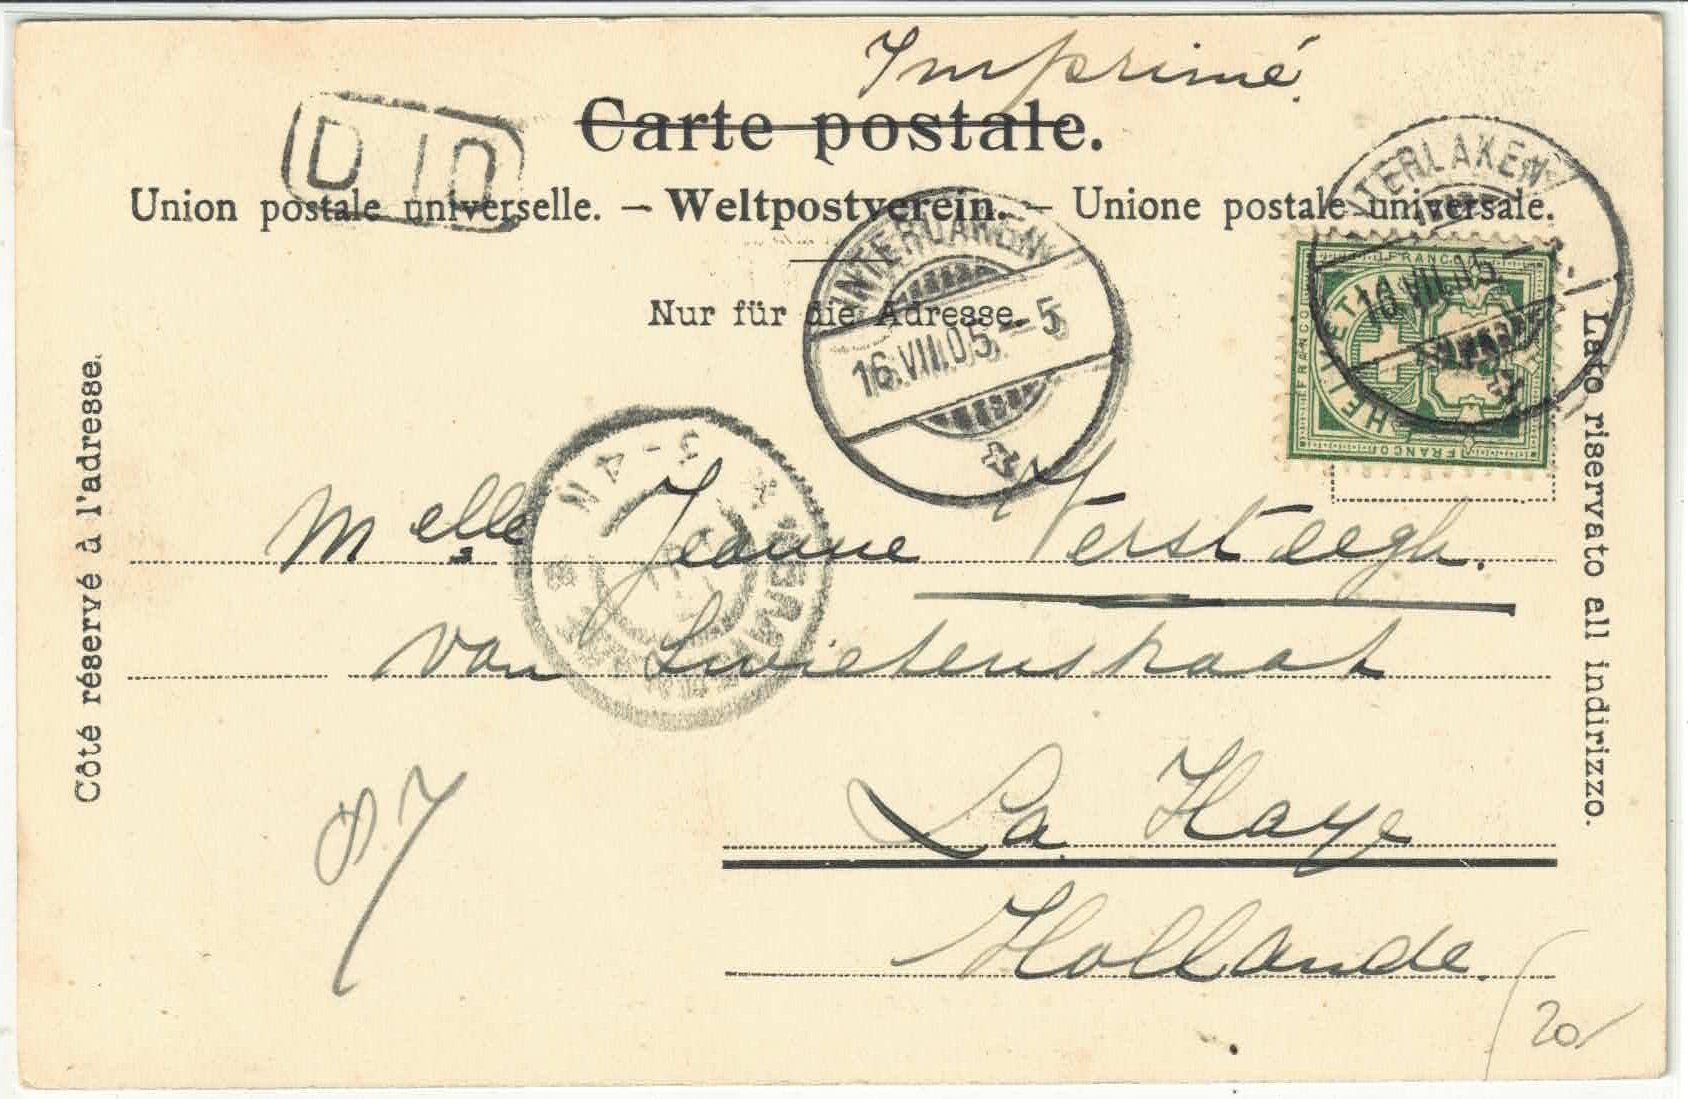 Imprimé
Carte postale.
D 10
Union postale universelle. — Weltpostverein. — Unione postale universale.
Nur für die Adresse.
INTERLAKEN
16.VII.05.–5
INTERLAKEN
16.VII.05.–
FRANCO
FRANCO
FRANCO
HELVETIA
3-4 N
Côté réservé à l'adresse.
Lato riservato all indirizzo.
Melle Jeanne Versteegh.
van Swietenstraat
La Haye
Hollande.
87
20